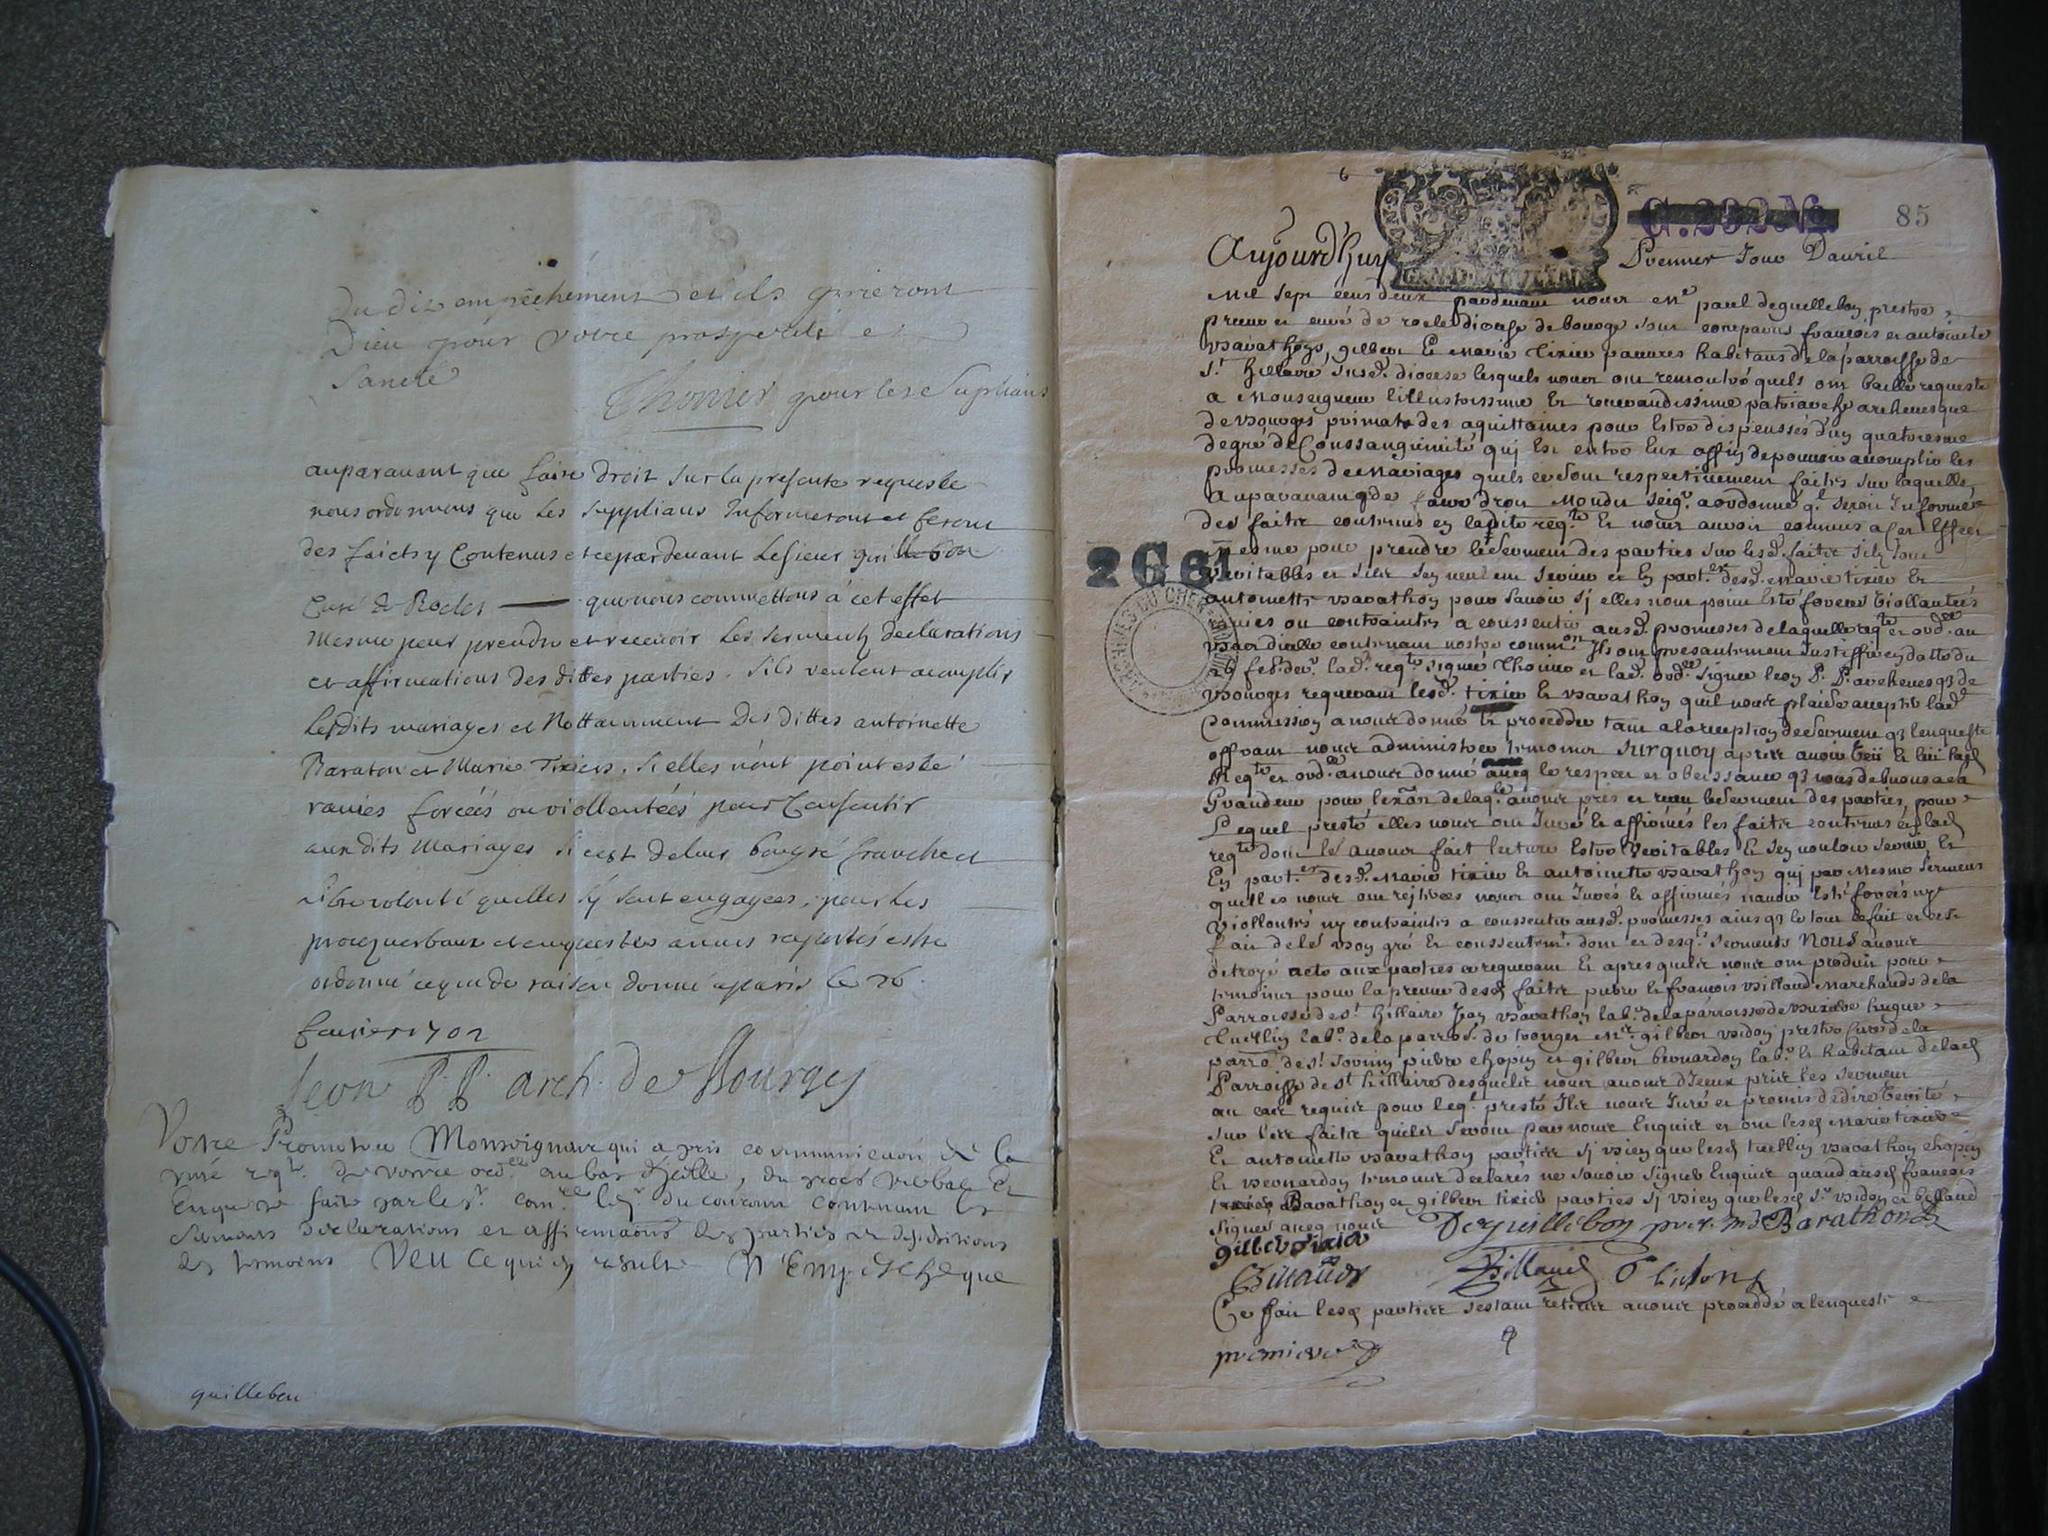 du dit empêchement et ils prieront
Dieu pour votre prosperité et
Santé
Thonier pour les Suplians
auparauant que faire droit sur la presente requeste
nous ordonnons que les supplians Informeront et feront
des faicts y Contenus et ce pardeuant le sieur guillebon
Curé de Rocles — que nous commettons à cet effet
mesme pour prendre et receuoir les serments declarations
et affirmations des dittes parties. s'ils veulent acomplir
lesdits mariages et Nottamment des dittes antoinette
Baraton et Marie Tixiers, si elles n'ont point esté
rauies forcées ou viollentées pour Consentir
aux dits Mariages si c'est de leur bon gré franche et
libre volonté quelles s'y sont engagées, pour les
procez verbaux et enquestes a nous raportés estre
ordonné ce que de raison donné a paris le 26
feurier 1702
Leon P. P. arch. de Bourges
Votre Promoteur Monseigneur qui a pris communication de la
req.te de votre ord.ce au bas d'jcelle, du procés verbal Et
Enqueste faite par le s.r com.re du courant contenant les
serments declarations et affirmaons des parties et depositions
des temoins Veu ce qui en resulte N'Empesche que
guillebon
G. 292 N
85
Aujourd'huy Premier Jour Dauril
Mil sept cens deux pardeuant nous M.e paul deguillebon prestre
prieur et curé de rocle diocese de bourge sont comparus françois et antoinette
barathons, gilbert Et Marie Tixier pauures habitans de la parroisse de
S.t Hillaire susd. diocese lesquels nous ont remontré quils ont baillé requeste
a Monseigneur l'illustrissime Et reuerandissime patriarche archeuesque
de bourges primat des aquittaines pour Estre dispensés d'un quatriesme
degré de Conssanguinité qui Est entre Eux affin de pouuoir acomplir les
promesses de Mariages quils se sont respectiuement faites sur laquelle
Auparauant q. de faire droit Mondit seig.r a ordonné q.l seroit Informé
des faits contenus en ladite req.te Et nous auroit commis a cet Effect
mesme pour prendre le serment des parties sur lesd. faits s'ils sont
veritables et s'ils s'en veulent seruir et En part.er lesd. Marie tixier Et
antoinette barathon pour sauoir sj elles n'ont point Esté forcées viollantées
rauies ou contraintes a conssentir ausd. promesses de laquelle req.te et ord.ce au
bas d'icelle contenant nostre comm.on Ils ont presantement justiffié en datte du
26 feb. der. lad. req.te signée Thonier et lad. ord.ce signée leon P. P. archeuesq. de
bourges requerant lesd. tixier Et barathon quil nous plaise accepter lad.
Commission a nous donné Et proceder tant a la reception de serment q. lenqueste
offrant nous administrer temoins surquoy apres auoir veü Et leü lad.
Req.te et ord.ce a nous donné auecq le respect et obeissance q. nous debuons a sa
Grandeur pour lexãn de laq.le auons pris et receu le serment des parties, pour
Lequel presté elles nous ont Juré Et affirmés les faits contenus en lad.
req.te dont leur auons fait lecture Estre Veritables Et s'en vouloir seruir, Et
En part.er lesd. Marie tixier Et antoinette barathon qui par Mesme serment
quelles nous ont reitérées nous ont Jurés Et affirmés nauoir Esté forcées ny
viollentés ny contraintes a conssentir ausd. promesses ains q. le tout se fait et
fait de leur bon gré Et conssentem.t dont et desq. serments Nous auons
octroyé acte aux parties ce requerant Et apres quils nous ont produit pour
temoins pour la preuue desd. faits pierre Et françois billaud Marchands de la
Parroisse de s.t hillaire Jean barathon lab.r de la parroisse de
lab.r de la parros. de tronget M.re gilbert bidon prestre Curé de la
parro. de s.t sornin pierre chopin et gilbert bernardon lab.r Et habitant de lad.
Parroisse de s.t hillaire desquels nous auons d'jceux pris les serment
au cas requis pour leq.l presté Ils nous Juré et promis de dire Verité
sur les faits quils seront par nous Enquis et ont lesd. Marie tixier
Et antoinette barathon parties sj bien que lesd. barathon chopin
Et bernardon temoins declarés ne sauoir signer Enquis quand ausd. françois
Barathon et gilbert tixier parties sj bien que lesd. s.r bidon et billaud
signer auecq nous Deguillebon Barathon
gilber tixier
Billaud Billaud bidon
Ce fait lesd. parties s'estant retirée auons procedé a lenqueste
premiere
2 G 81
ARCHIVES DU CHER